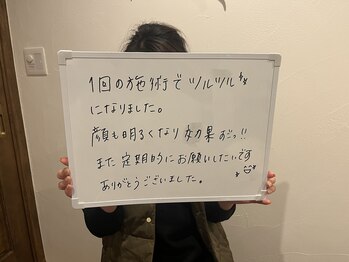 1回の施術でツルツル
になりました。
顔も明るくなり効果すごっ!!
また定期的にお願いしたいです
ありがとうございました。